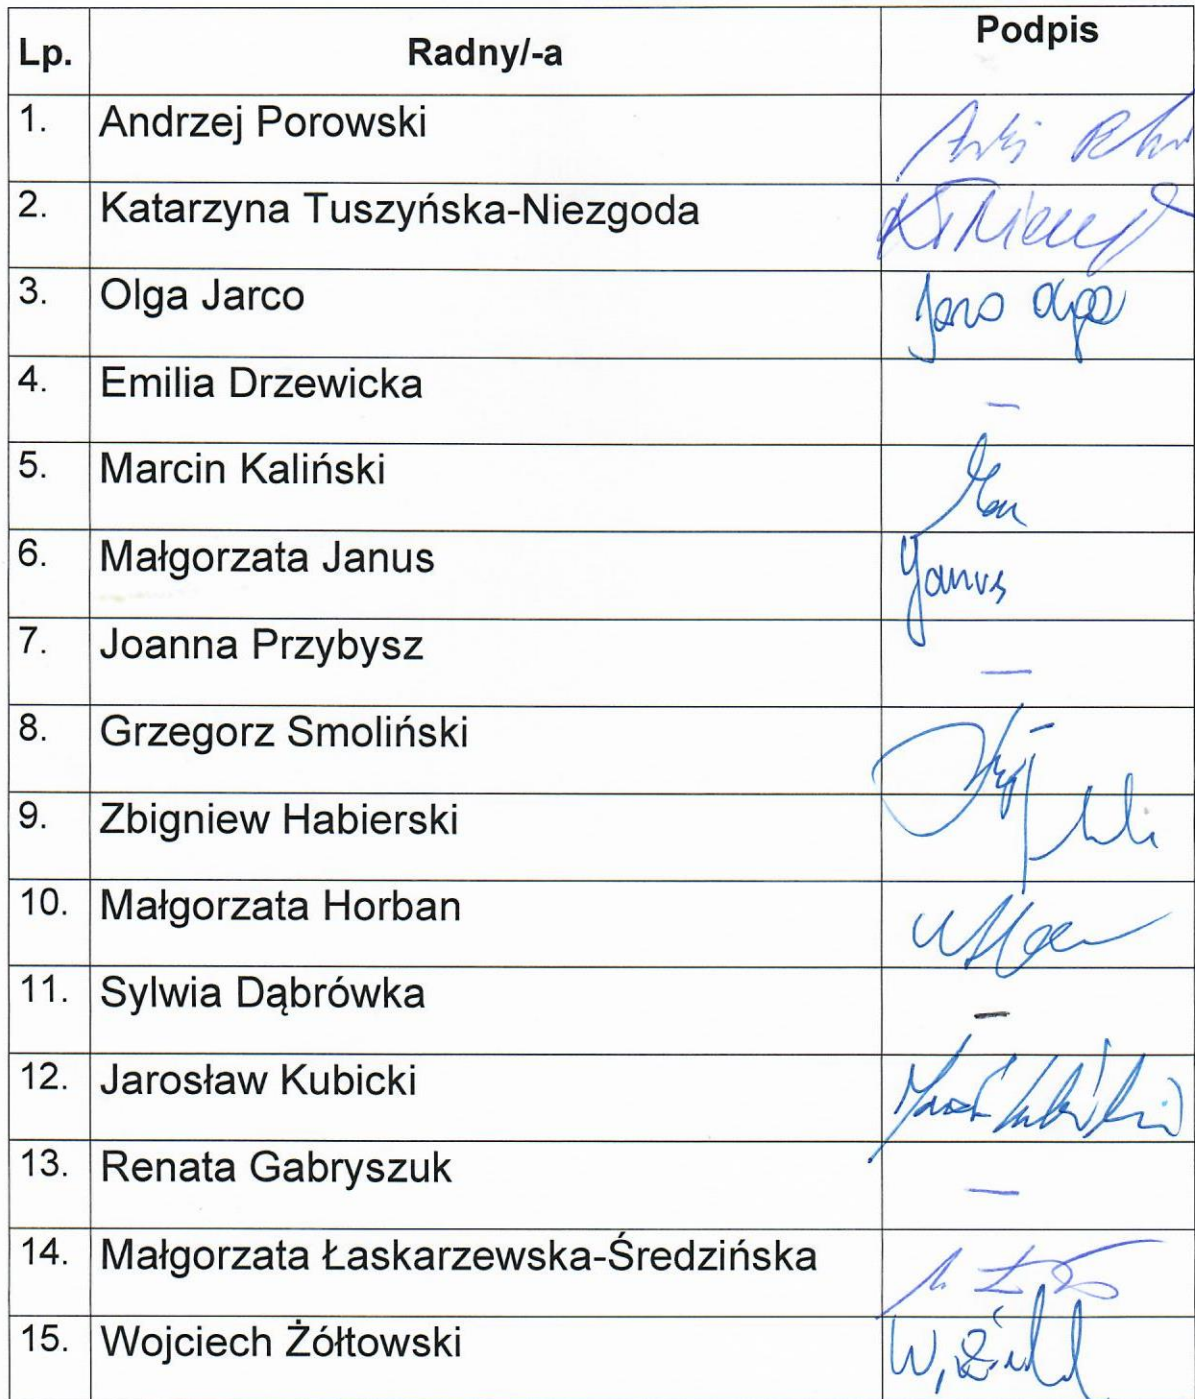 Lp. Radny/-a Podpis
1. Andrzej Porowski
2. Katarzyna Tuszyńska-Niezgoda
3. Olga Jarco Jarco Olga
4. Emilia Drzewicka —
5. Marcin Kaliński
6. Małgorzata Janus Janus
7. Joanna Przybysz —
8. Grzegorz Smoliński
9. Zbigniew Habierski
10. Małgorzata Horban
11. Sylwia Dąbrówka —
12. Jarosław Kubicki
13. Renata Gabryszuk —
14. Małgorzata Łaskarzewska-Średzińska
15. Wojciech Żółtowski